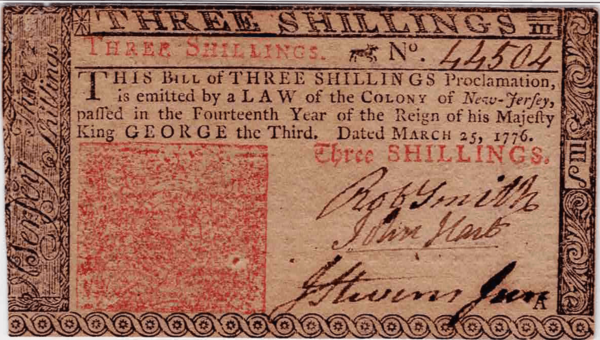 THREE SHILLINGS III
THREE SHILLINGS. No. 44504
THIS BILL of THREE SHILLINGS Proclamation,
is emitted by a LAW of the COLONY of New-Jersey,
paſſed in the Fourteenth Year of the Reign of his Majeſty
King GEORGE the Third. Dated MARCH 25, 1776.
Three SHILLINGS.
Robt Smith
John Hart
J Stevens Jun
A
III
Jerſey